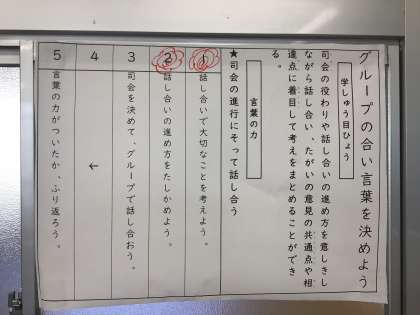 グループの合い言葉を決めよう
学しゅう目ひょう
司会の役わりや話し合いの進め方を意しきし
ながら話し合い、たがいの意見の共通点や相
違点に着目して考えをまとめることができ
る。
言葉の力
★司会の進行にそって話し合う
1 話し合いで大切なことを考えよう。
2 話し合いの進め方をたしかめよう。
3 司会を決めて、グループで話し合おう。
4 ↓
5 言葉の力がついたか、ふり返ろう。